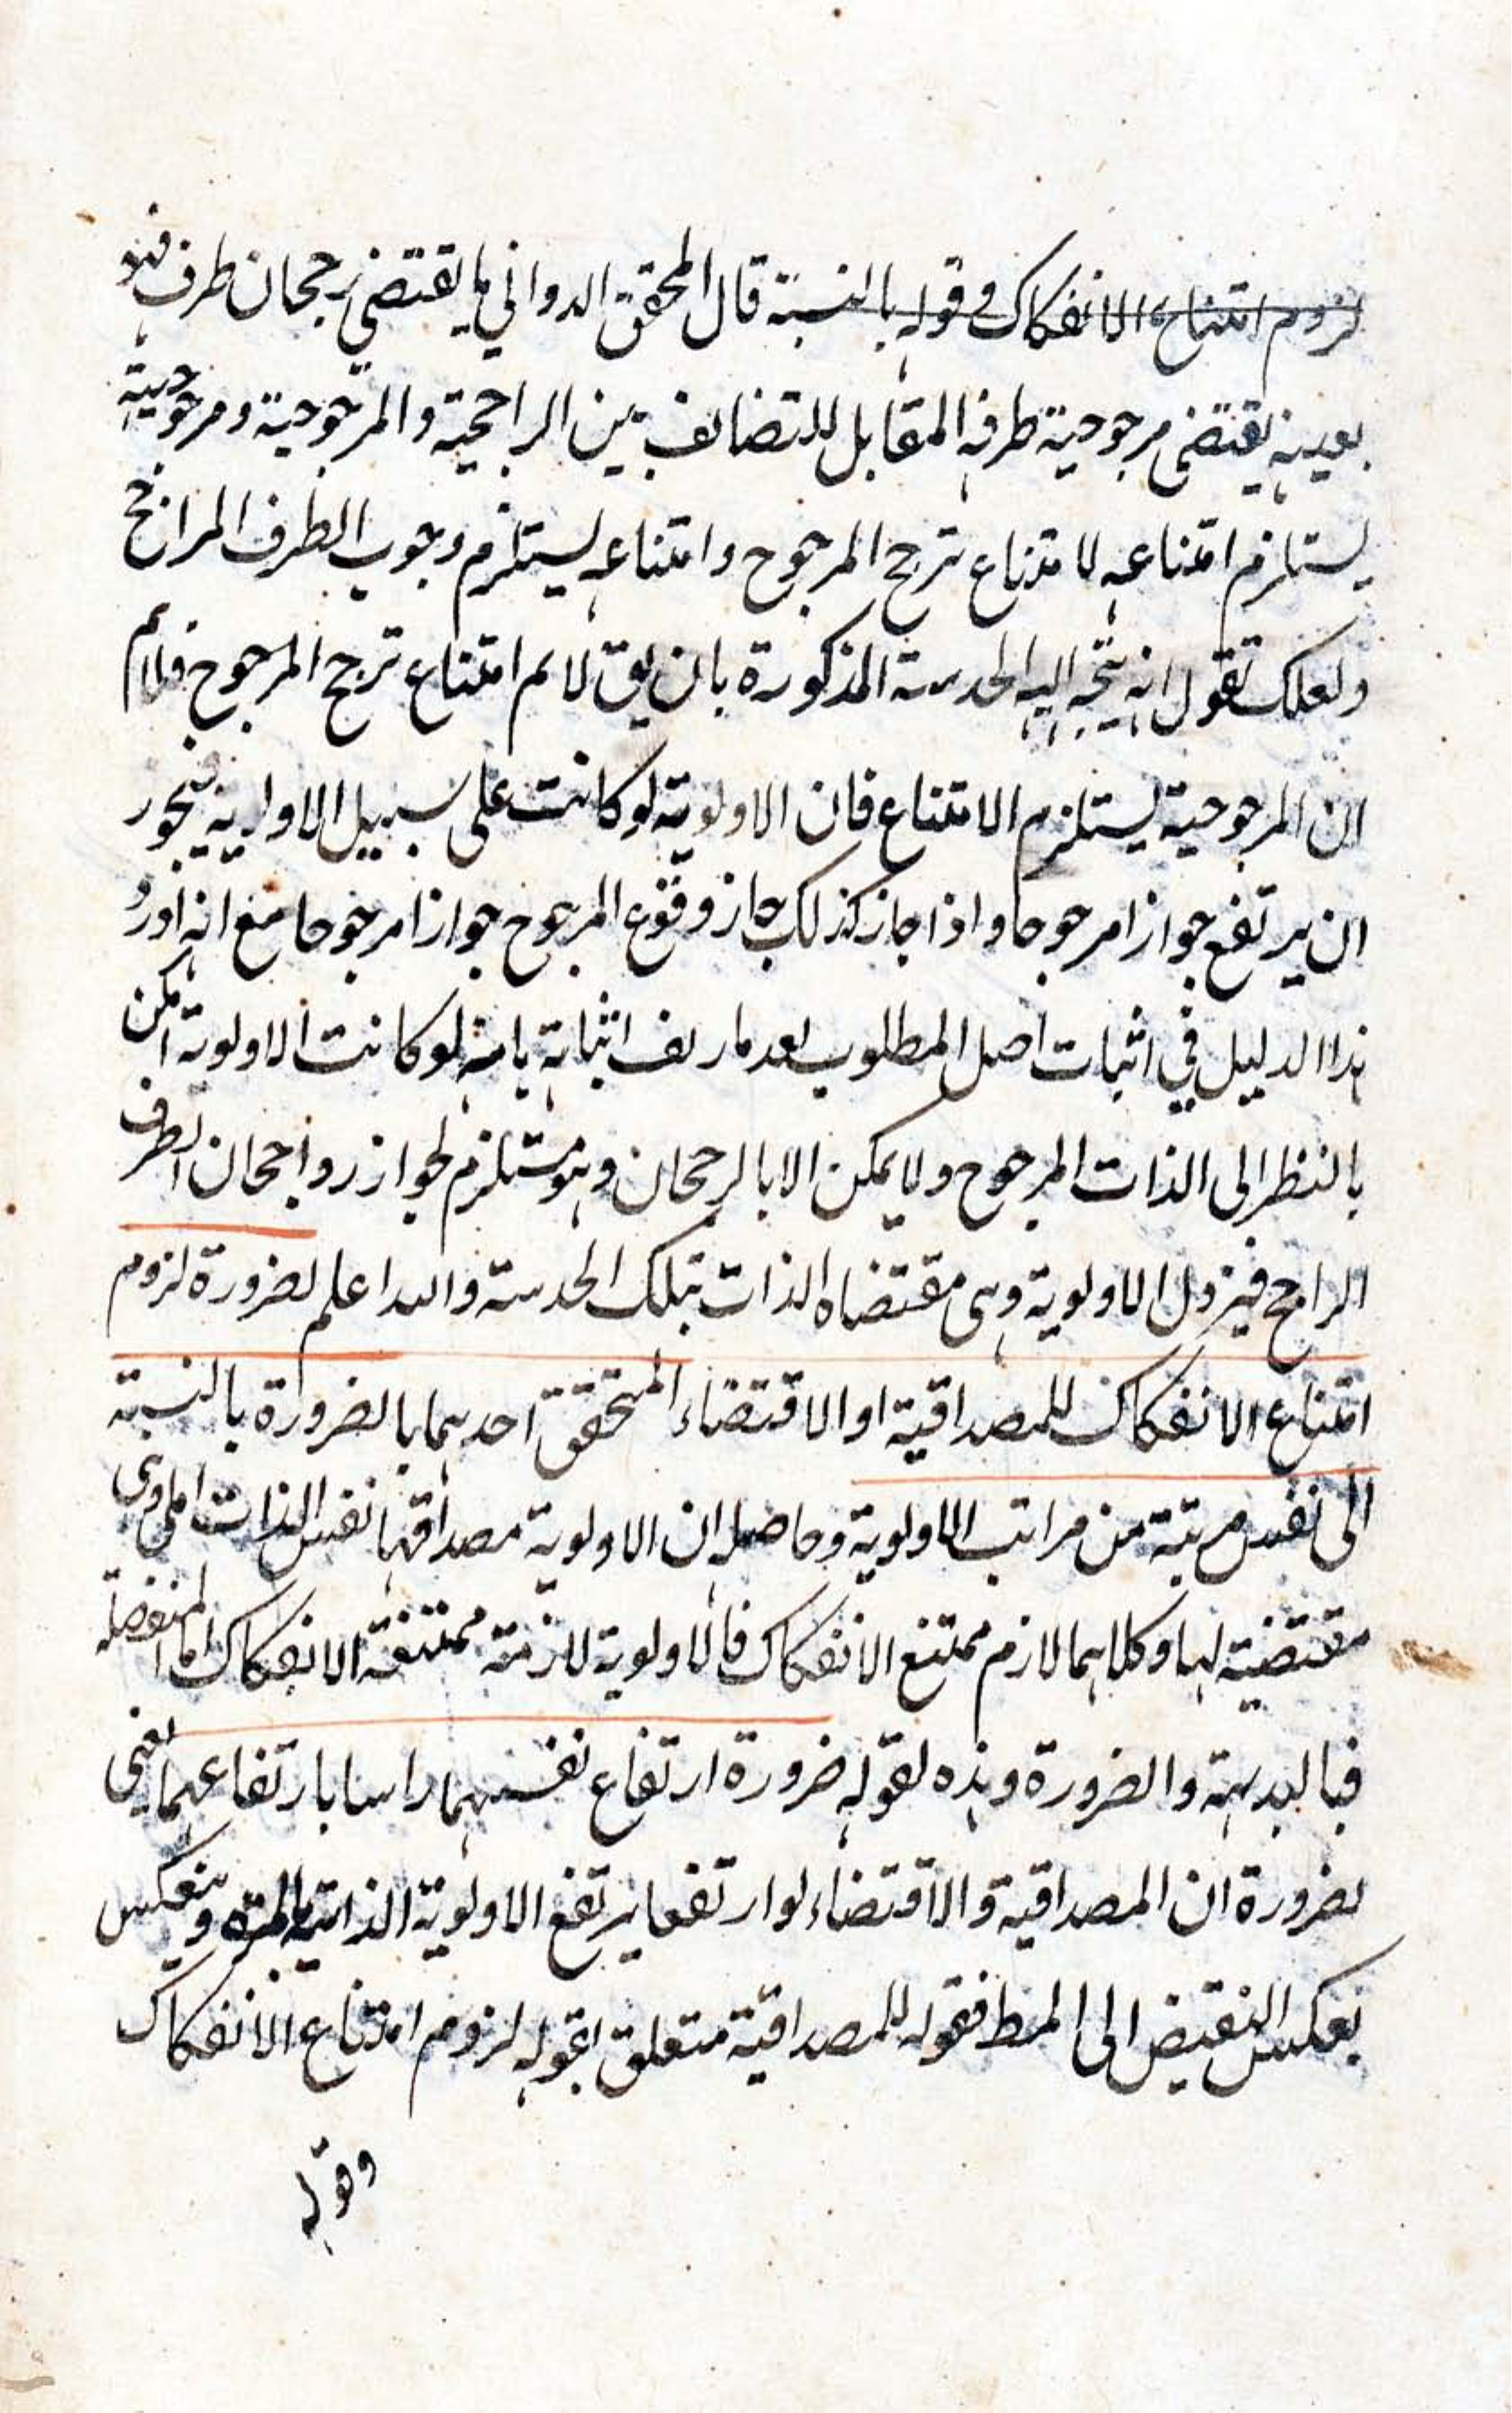 لزوم امتناع الانفكاك وقوله بالنسبة قال المحقق الدواني ما يقتضي رجحان طرف فهو
بعينه يقتضي مرجوحية طرفه المقابل للتضايف بين الراجحية والمرجوحية ومرجوحيته
يستلزم امتناعه لامتناع ترجح المرجوح وامتناعه يستلزم وجوب الطرف الراجح
ولعلك تقول انه يتجه اليه الحدسة المذكورة بان يق لا لم امتناع ترجح المرجوح فلا لم
ان المرجوحية يستلزم الامتناع فان الاولوية لو كانت على سبيل الاولوية فيجوز
ان يرتفع جوازا مرجوحا واذا جاز كذلك جاز وقوع المرجوح جوازا مرجوحا مع انه اورد
هذا الدليل في اثبات اصل المطلوب بعد ما اثباته بانه لو كانت الاولوية امكن
بالنظر الى الذات المرجوح ولا يمكن الا بالرجحان وهو مستلزم لجواز رواجحان الطرف
الراجح فيزول الاولوية وهي مقتضاه الذات بتلك الحدسة والله اعلم لضرورة لزوم
امتناع الانفكاك للمصداقية او الاقتضاء المتحقق احدهما بالضرورة بالنسبة
الى نفس مرتبة من مراتب الاولوية وحاصله ان الاولوية مصداقها نفس الذات او هي
مقتضية لها وكلاهما لازم ممتنع الانفكاك فالاولوية لازمة ممتنعة الانفكاك اما المنفصلة
فبالبديهة والضرورة وهذه لقوله ضرورة ارتفاع نفسهما راسا بارتفاعهما يعني
لضرورة ان المصداقية والاقتضاء لو ارتفعا يرتفع الاولوية الذاتية بالمرة وينعكس
بعكس النقيض الى المط فقوله للمصداقية متعلق بقوله لزوم امتناع الانفكاك
وقوله